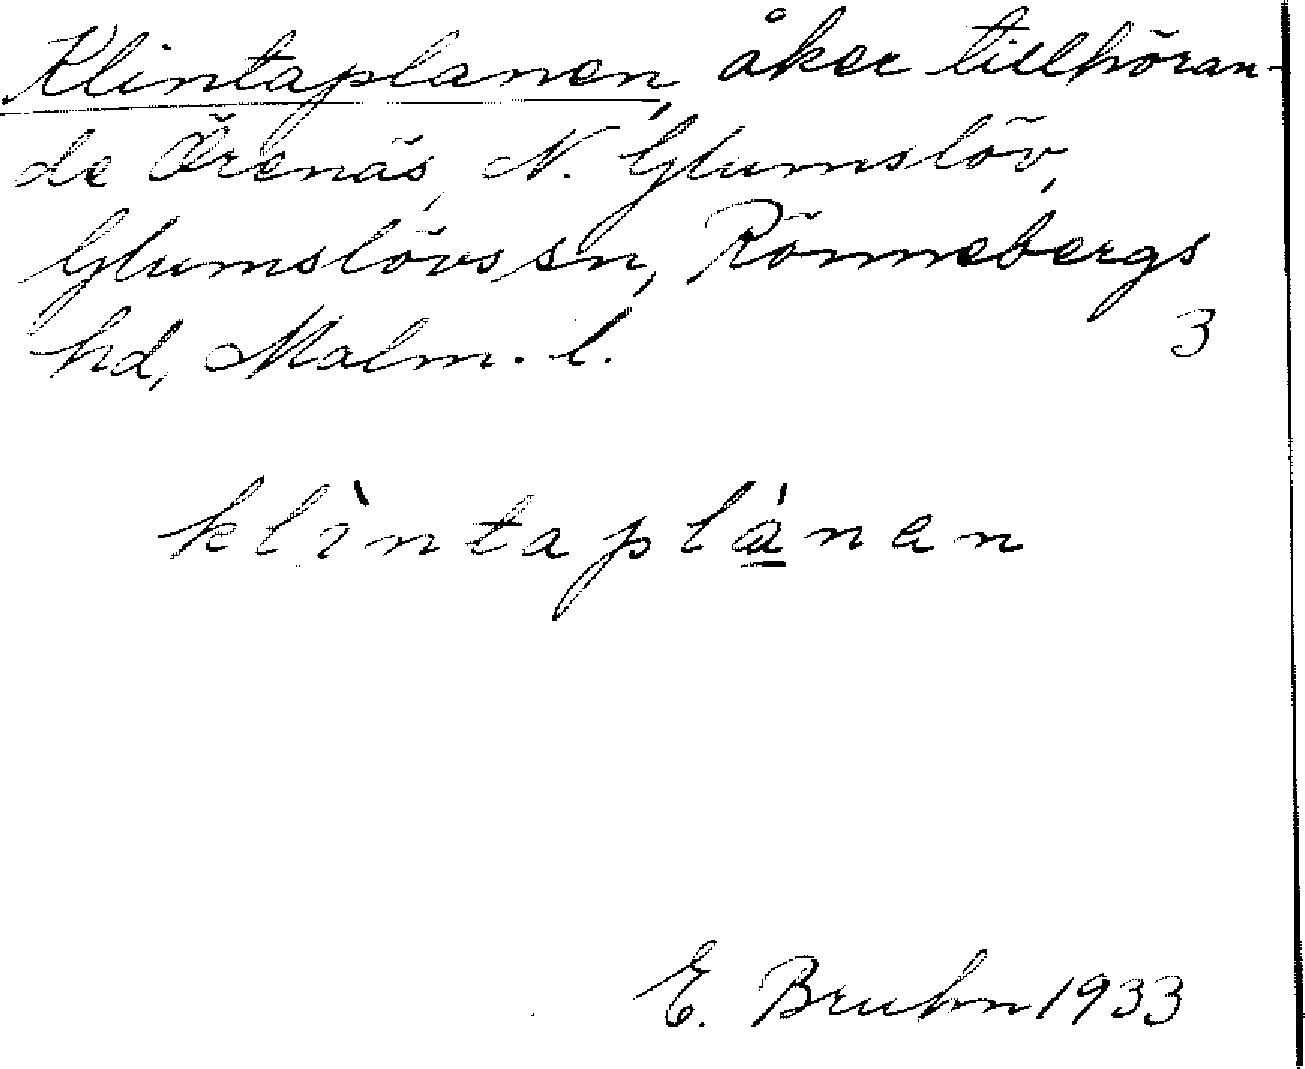 Klintaplanen, åker tillhöran-
de Örenäs, N. Glumslöv,
Glumslövs sn, Rönnebergs
hd, Malm. l. 3
klìntaplá̱nen
E. Bruhn 1933